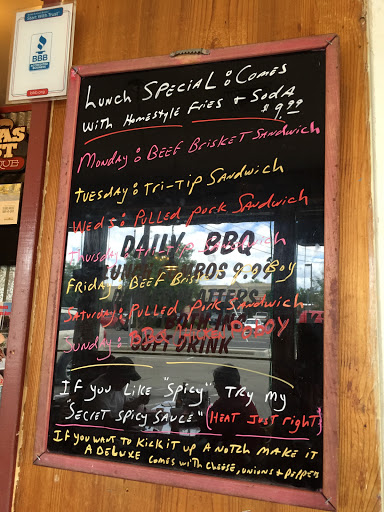 BBB
AS
ST
QUB
Lunch SPECIAL: Comes
With Homestyle Fries & Soda
$9.99
Monday: BEEF Brisket Sandwich
TUESDAY: Tri-Tip Sandwich
WEDS: Pulled Pork Sandwich
Thursday: Tri-Tip Sandwich
DAILY BBQ
FRIDAY: Beef Bris Boy
Saturday: Pulled Pork Sandwich
Sunday: BBQ POBOY
DRINK
IF you LIKE "SPICY" TRY MY
"SECRET SPICY SAUCE" (HEAT JUST right)
IF YOU WANT TO KICK IT UP A NOTCH MAKE IT
A DELUXE COMES WITH CHEESE, ONIONS & PEPPERS